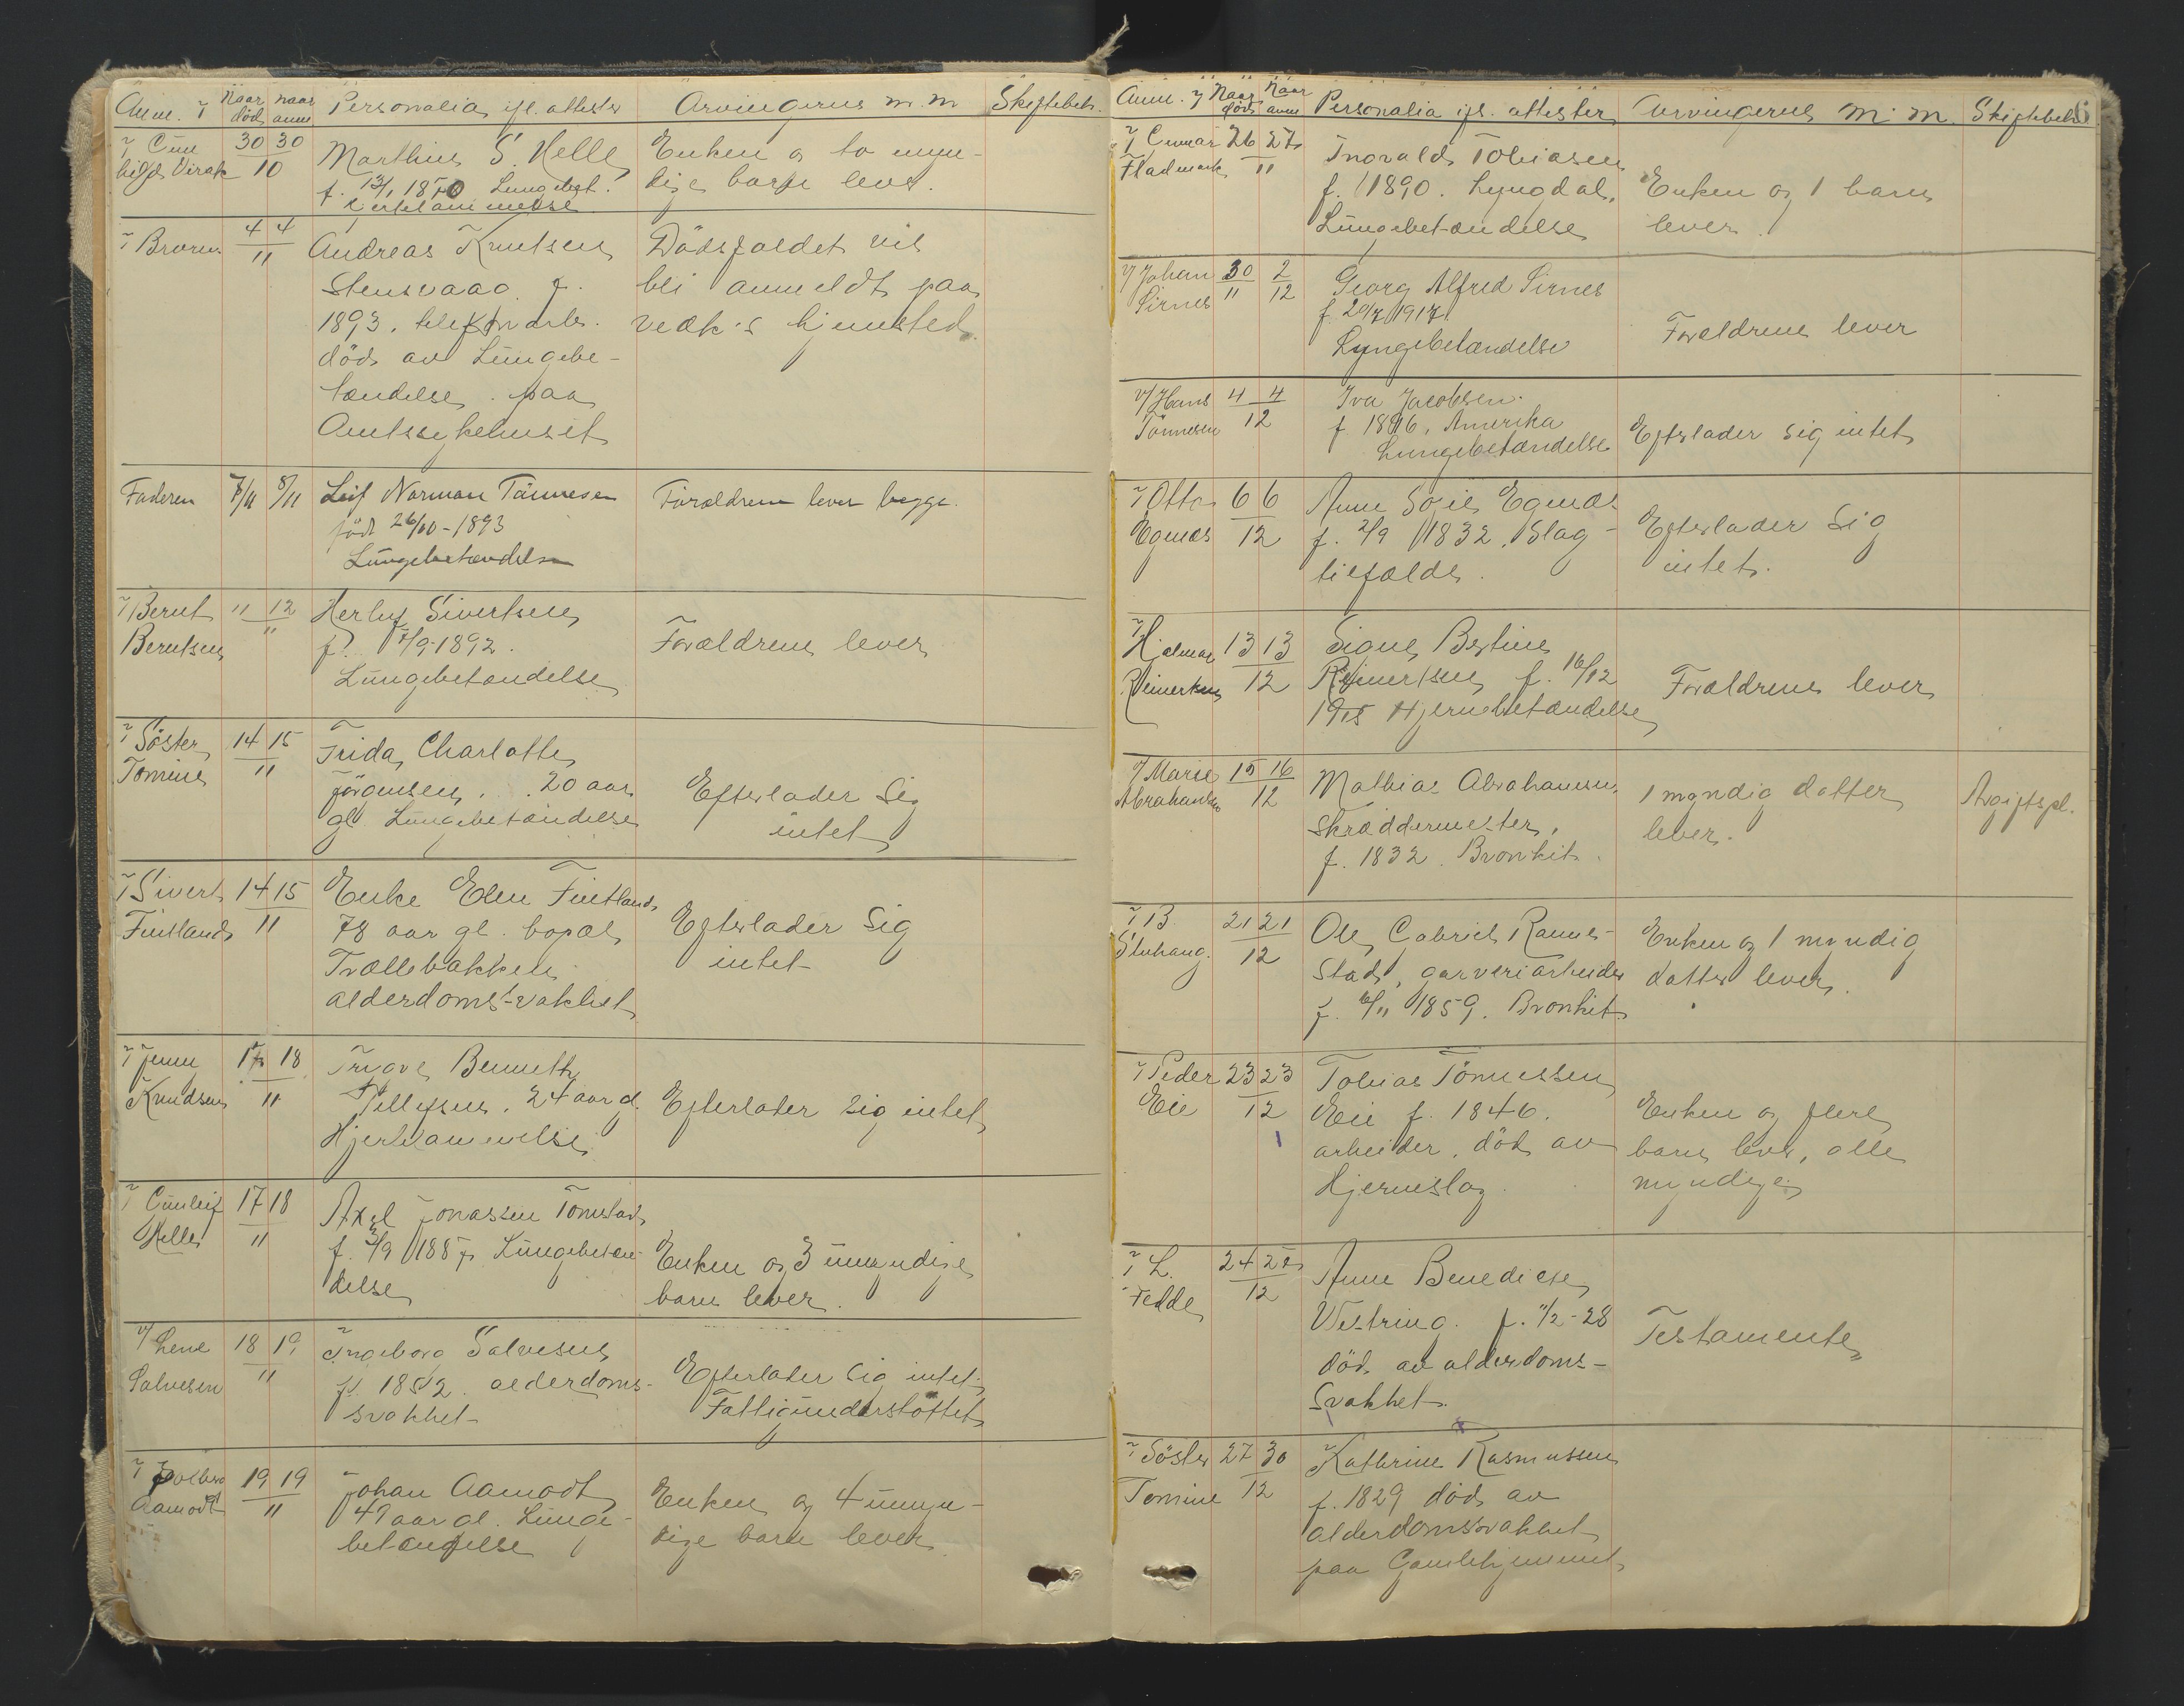 Anm. v/ Naar död naar anm Personalia ifl. attester Arvingerne m.m Skiftebeh.
30 30
10
Marthius S. Helle
f. 13/1 1870 Lungebet.
Hjertelammelse
Enken og to myn-
dige barn lever.
v/ Broren 4 4
11
Andreas Knutsen
Stensvaag f.
1893, telefonarb.
död av Lungebe-
tændelse paa
Amtssykehuset
Dödsfaldet vil
bli anmeldt paa
vedk's hjemsted.
Faderen 7/11 8/11
Leif Norman Tönnesen
född 26/10-1893
Lungebetændelse
Forældrene lever begge.
v/ Bernt
Berntsen
11 12
11
Herluf Sivertsen
f. 7/9-1892.
Lungebetændelse
Forældrene lever
v/ Söster
Tomine
14 15
11
Frida Charlotte
Jörgensen. 20 aar
gl. Lungebetændelse
Efterlader Sig
intet
v/ Sivert
Fintland
14 15
11
Enke Elen Fintland
78 aar gl. bopæl
Trællebakken
alderdoms-svakhet
Efterlader Sig
intet
v/ Jenny
Knudsen
17 18
11
Trygve Benneth
Tellefsen. 24 aar gl.
Hjertelammelse
Efterlater sig intet
v/ Gunleif
Helle
17 18
11
Axel Jonassen Tomstad
f. 3/9 1887 Lungebetæn-
delse
Enken og 3 umyndige
barn lever.
v/ Lene
Salvesen
18 19
11
Ingeborg Salvesen
f. 1852. alderdoms-
svakhet
Efterlater sig intet.
Fattigunderstöttet
v/ Solberg
Aamodt
19 19
11
Johan Aamodt
49 aar gl. Lunge-
betændelse
Enken og 4 umyn-
dige barn lever
Anm. v/ Naar död Naar anm Personalia ifl. attester Arvingerne m.m. Skiftebeh.
v/ Gunnar
Fladmark
26 27
11
Ingvald Tobiasen
f. 1890. Lyngdal.
Lungebetændelse
Enken og 1 barn
lever.
v/ Johan
Sirnes
30 2
11 12
Georg Alfred Sirnes
f. 20/7 1917
Lungebetændelse
Forældrene lever
v/ Hans
Tönnesen
4 4
12
Iver Jacobsen.
f. 1896, Amerika
Lungebetændelse
Efterlader sig intet
v/ Otto
Egenæs
6 6
12
Anne Sofie Egenæs
f. 2/9 1832. Slag-
tilfælde.
Efterlader Sig
intet.
v/ Hjalmar
Reinertsen
13 13
12
Signe Bertine
Reinertsen f. 16/12
1915 Hjernebetændelse
Forældrene lever
v/ Marie
Abrahamsen
15 16
12
Mathias Abrahamsen.
Skræddermester,
f. 1832. Bronkit.
1 myndig datter
lever.
Avgiftspl.
v/ B.
Stuhaug.
21 21
12
Ole Gabriel Rannes-
stad, garveriarbeider
f. 6/11 1859. Bronkit
Enken og 1 myndig
datter lever.
v/ Peder
Eie
23 23
12
Tobias Tönnessen
Eie f. 1846.
arbeider, död av
Hjerneslag.
Enken og flere
barn lever, alle
myndige
v/ L.
Fedde
24 28
12
Anne Benedicte
Westring. f. 1/2-28
död av alderdoms-
svakhet.
Testamente
v/ Söster
Tomine
27 30
12
Kathrine Rasmussen
f. 1829 död av
alderdomssvakhet
paa Gamlehjemmet